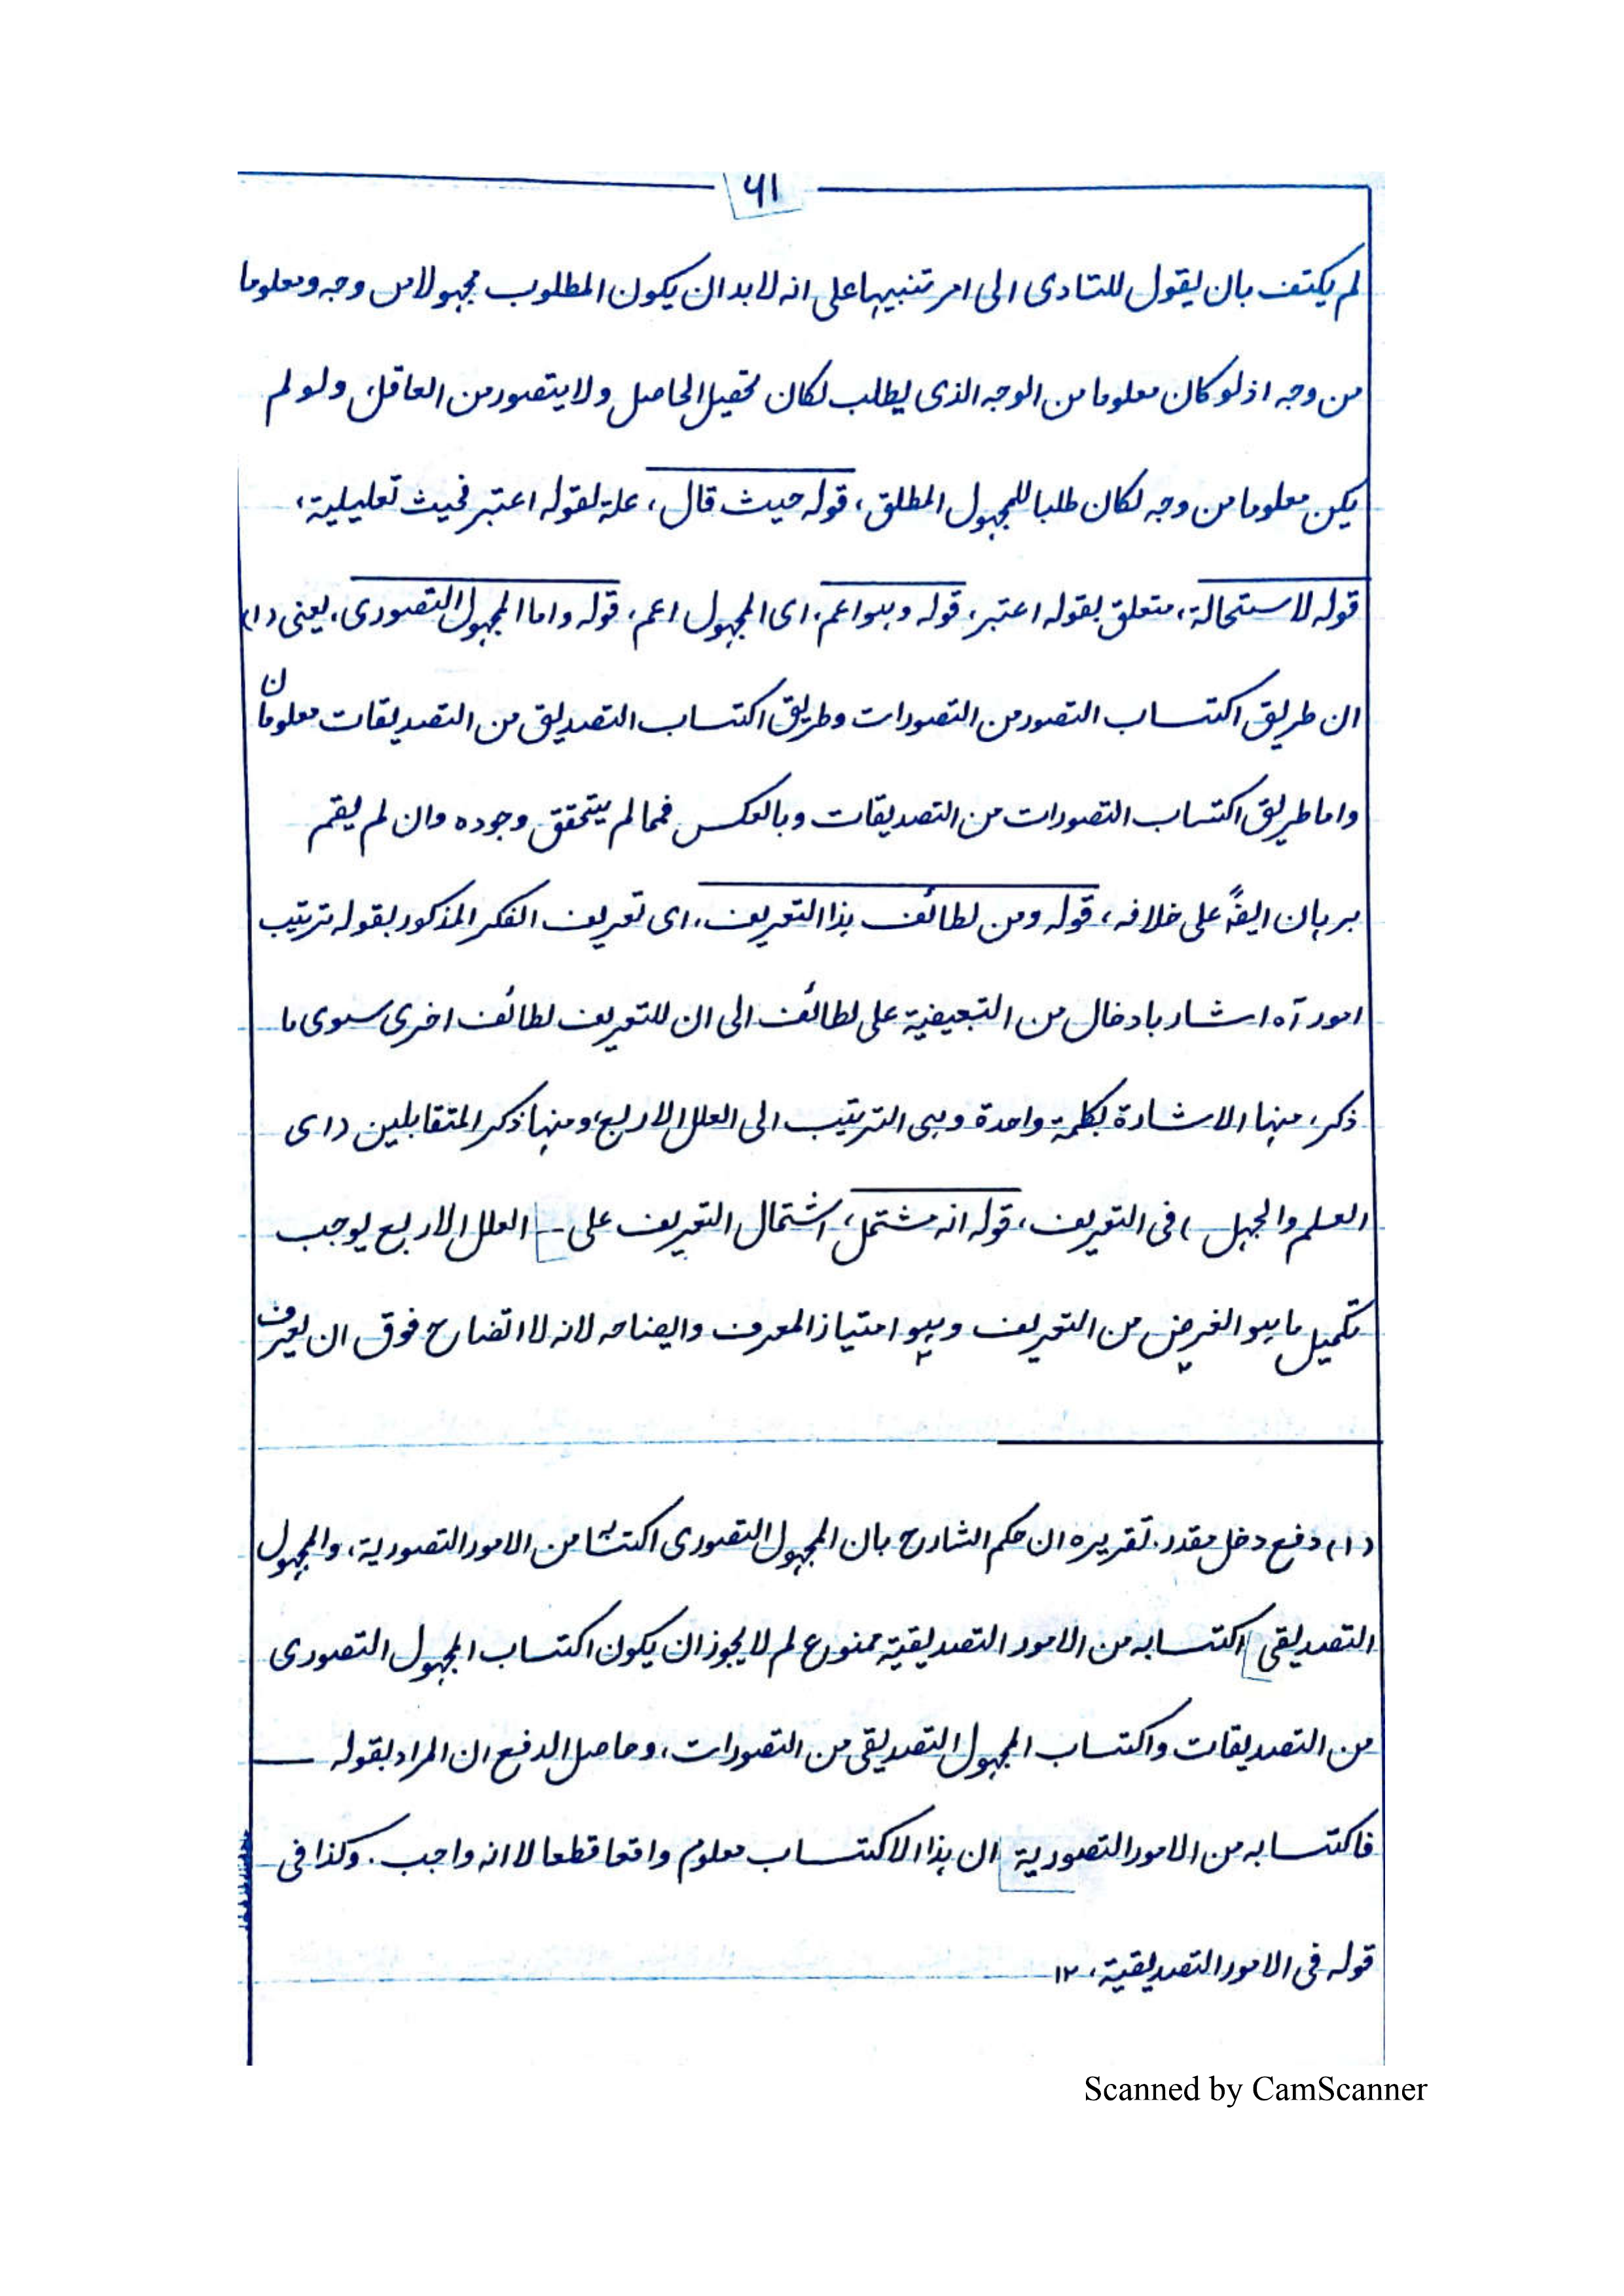 ٦١
لم يكتف بان يقول للتادى الى امر تنبيها على انه لا بد ان يكون المطلوب مجهولا من وجه ومعلوما
من وجه اذ لو كان معلوما من الوجه الذى يطلب لكان تحصيل الحاصل ولا يتصور من العاقل، ولو لم
يكن معلوما من وجه لكان طلبا للمجهول المطلق، قوله حيث قال، علة لقوله اعتبر فحيث تعليلية،
قوله لاستحالة، متعلق بقوله اعتبر، قوله وهو اعم، اى المجهول اعم، قوله واما المجهول التصورى، يعنى (١)
ان طريق اكتساب التصور من التصورات وطريق اكتساب التصديق من التصديقات معلومان
واما طريق اكتساب التصورات من التصديقات وبالعكس فمما لم يتحقق وجوده وان لم يقم
برهان ايضًا على خلافه، قوله ومن لطائف هذا التعريف، اى تعريف الفكر المذكور بقوله ترتيب
امور آه اشار بادخال من التبعيضية على لطائف الى ان للتعريف لطائف اخرى سوى ما
ذكر، منها الاشارة بكلمة واحدة وهى الترتيب الى العلل الاربع، ومنها ذكر المتقابلين (اى
العلم والجهل) فى التعريف، قوله انه مشتمل، اشتمال التعريف على - العلل الاربع يوجب
تكميل ما هو الغرض من التعريف وهو امتياز المعرف وايضاحه لانه لا اتضاح فوق ان يعرف
(١) دفع دخل مقدر. تقريره ان حكم الشارح بان المجهول التصورى اكتسابه من الامور التصورية، والمجهول
التصديقى اكتسابه من الامور التصديقية ممنوع لم لا يجوز ان يكون اكتساب المجهول التصورى
من التصديقات واكتساب المجهول التصديقى من التصورات، وحاصل الدفع ان المراد بقوله
فاكتسابه من الامور التصورية ان هذا الاكتساب معلوم واقعا قطعا لا انه واجب. وكذا فى
قوله فى الامور التصديقية، ١٢
Scanned by CamScanner